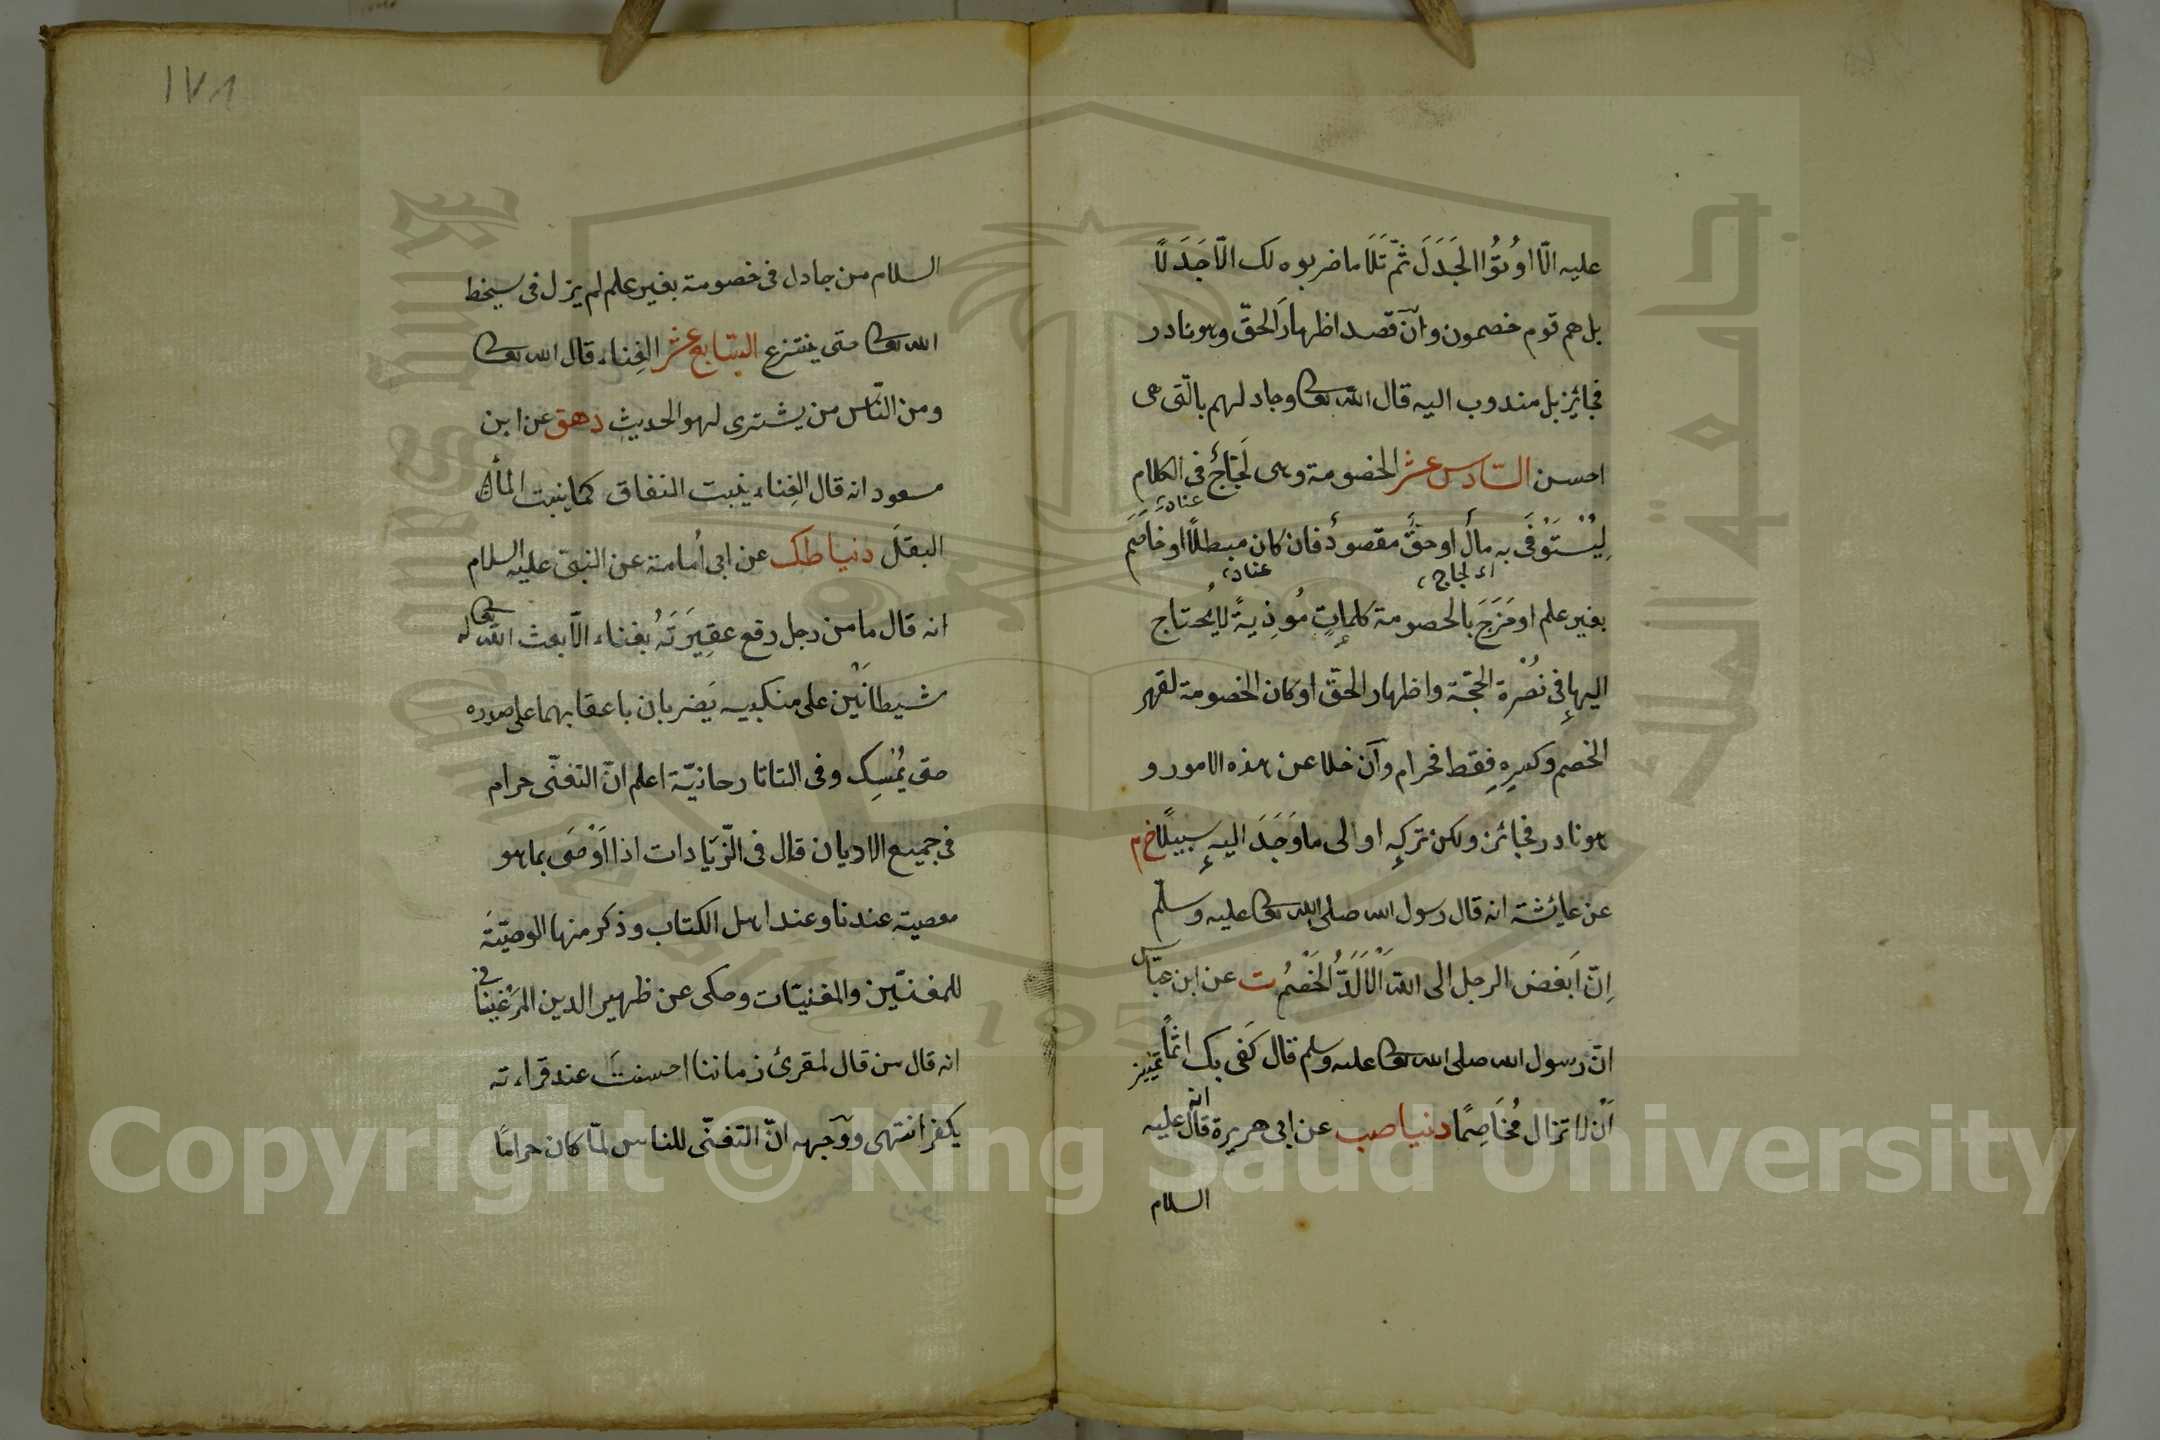 عليه الّا اوُتُوا الجَدَلَ ثمّ تَلَا ما ضربوه لك الّا جَدَلًا
بل هم قوم خصمون وان قصد اظهارَ الحقّ وهو نادر
فجائز بل مندوب اليه قال الله تعالى وجادلهم بالّتى هى
احسن السّادس عشر الخصومة وهى لَجَاجٌ فى الكلام
عناد
لِيُسْتَوْفَى به مالٌ او حقٌّ مقصودٌ فان كان مبطلًا او خاصَمَ
اى لجاج
عناد
بغير علم او مَزَجَ بالخصومة كلماتٍ مُوذِيةً لا يُحتاج
اليها فى نُصْرة الحجّة واظهار الحقّ او كان الخصومة لقهر
الخصم وكسره فقط فحرام وان خلا عن هذه الامور و
هو نادر فجائز ولكن تركه اولى ما وَجَدَ اليه سبيلًا خ م
عن عايشة انه قال رسول الله صلى الله تعالى عليه وسلّم
اِنّ اَبغض الرجل الى الله الْاَلَدُّ الخَصْمُ ت عن ابن عبّاس
انّ رسول الله صلى الله تعالى عليه وسلم قال كَفى بك اثمًا
تمييز
اَنْ لا تزال مُخَاصِمًا دنيا صب عن ابى هريرة انه قال عليه
السلام
١٧٨
السلام من جادل فى خصومة بغير علم لم يزل فى سخط
الله تعالى حتى ينتزع السّابع عشر الغِناء قال الله تعالى
ومن النّاس من يشترى لهو الحديث دهق عن ابن
مسعود انه قال الغِناء ينبت النفاق كما ينبت المأُ
البقلَ دنيا طك عن ابى أمامة عن النبىّ عليه السلام
انه قال ما من رجل رفع عقِيرَتَهُ بغناء الّا بعث الله تعالى له
شيطانَيْن على منكبيه يَضربان باعقابهما على صدره
حتى يُمْسِك وفى التاتارخانيّة اعلم انّ التغنّى حرام
فى جميع الاديان قال فى الزّيادات اذا اَوْصَى بما هو
معصية عندنا وعند اهل الكتاب وذكر منها الوصيّةَ
للمغنّيين والمغنيّات وحكى عن ظهير الدين المَرْغينانى
انه قال من قال لمقرئ زماننا احسنتَ عند قراءته
يكفر انتهى ووجهه انّ التغنّى للناس لمّا كان حرامًا
Copyright © King Saud University
جامعة الملك سعود
King Saud University
1957